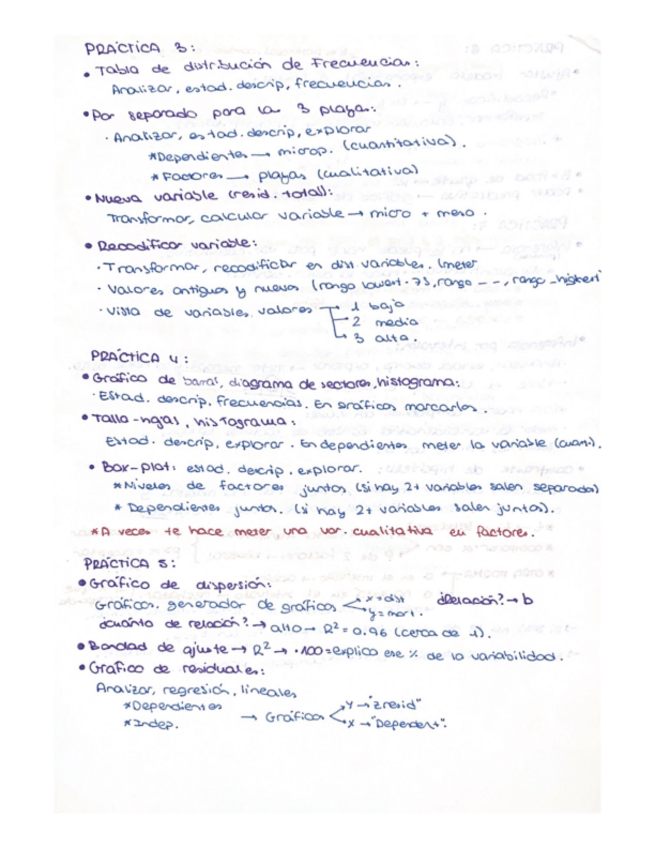 PRÁCTICA 3:
• Tabla de distribución de Frecuencias:
Analizar, estad. descrip, frecuencias.
• Por separado para la 3 playas:
· Analizar, estad. descrip, explorar
*Dependientes → microp. (cuantitativa).
* Factores → playas (cualitativa)
• Nueva variable (resid. total):
Transformar, calcular variable → micro + meso.
• Recodificar variable:
· Transformar, recodificar en dist variables. (meter
· Valores antiguos y nuevos (rango lowert-75, rango -, rango -highert
· Vista de variables, valores → 1 baja
2 media
3 alta.
PRÁCTICA 4:
• Gráfico de barras, diagrama de sectores, histograma:
· Estad. descrip, frecuencias. En gráficos marcarlos.
• Tallo-hojas, histograma:
Estad. descrip, explorar. En dependientes, meter la variable (cuanti).
• Box-plot: estad. descrip, explorar.
* Niveles de factores juntos (si hay 2+ variables salen separados)
* Dependientes juntos. (si hay 2+ variables salen juntos).
*A veces te hace meter una var. cualitativa en factores.
PRÁCTICA 5:
• Gráfico de dispersión:
Gráficos, generador de gráficos x = dist ¿Relación? → b
y = mort.
¿cuánto de relación? → alto → R² = 0,96 (cerca de 1).
• Bondad de ajuste → R² → ·100 = explico ese % de la variabilidad.
• Gráfico de residuales:
Analizar, regresión, lineales
*Dependientes → Gráficos Y → "Zresid"
*Indep. X → "Dependent".